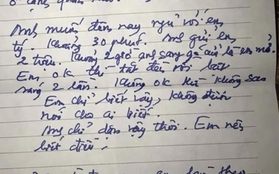 Anh muốn đêm nay ngủ với em
tý. Khoảng 30 phút. Anh gửi em
2 triệu. Khoảng 2 giờ anh sang gõ cửa là em mở.
Em ok thì tắt đèn rồi bật
sáng 2 lần. Không ok thì không sao
Em chỉ biết vậy, không được
nói cho ai biết.
Anh chỉ dặn vậy thôi. Em nên
biết điều.